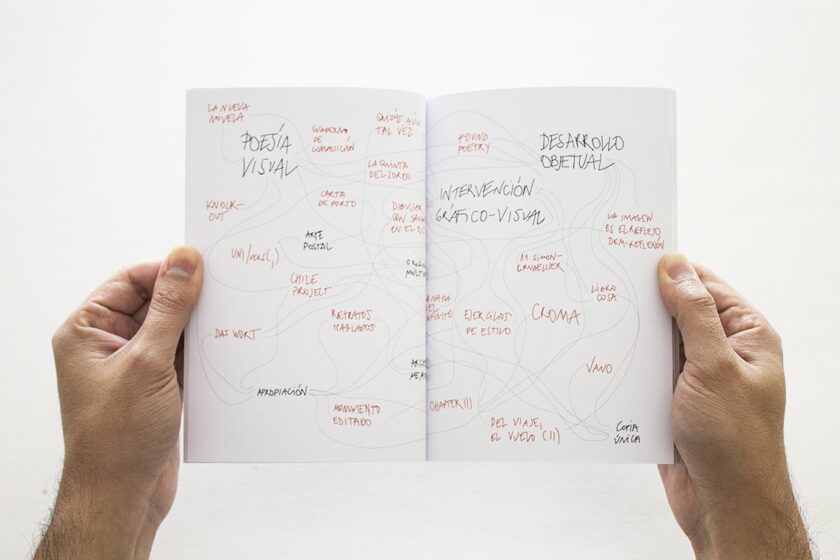 LA NUEVA
NOVELA
POESÍA
VISUAL
CUADERNO
DE COMPOSICIÓN
QUIZÁS, AÚN
TAL VEZ
LA QUINTA
DEL SORDO
KNOCK-
OUT
CARTA
DE PORTO
DIBUJAR
CON SANGRE
EN EL
UNI/VERS(;)
ARTE
POSTAL
CHILE
PROJECT
DAS WORT
RETRATOS
HABLADOS
APROPIACIÓN
MONUMENTO
EDITADO
FOUND
POETRY
DESARROLLO
OBJETUAL
INTERVENCIÓN
GRÁFICO-VISUAL
LA IMAGEN
ES EL REFLEJO
DE MI REFLEXIÓN
11 SIMON-
CRUBELLIER
LIBRO
COSA
EJERCICIOS
DE ESTILO
CROMA
VANO
CHAPTER III
DEL VIAJE,
EL VUELO (II)
COPIA
ÚNICA